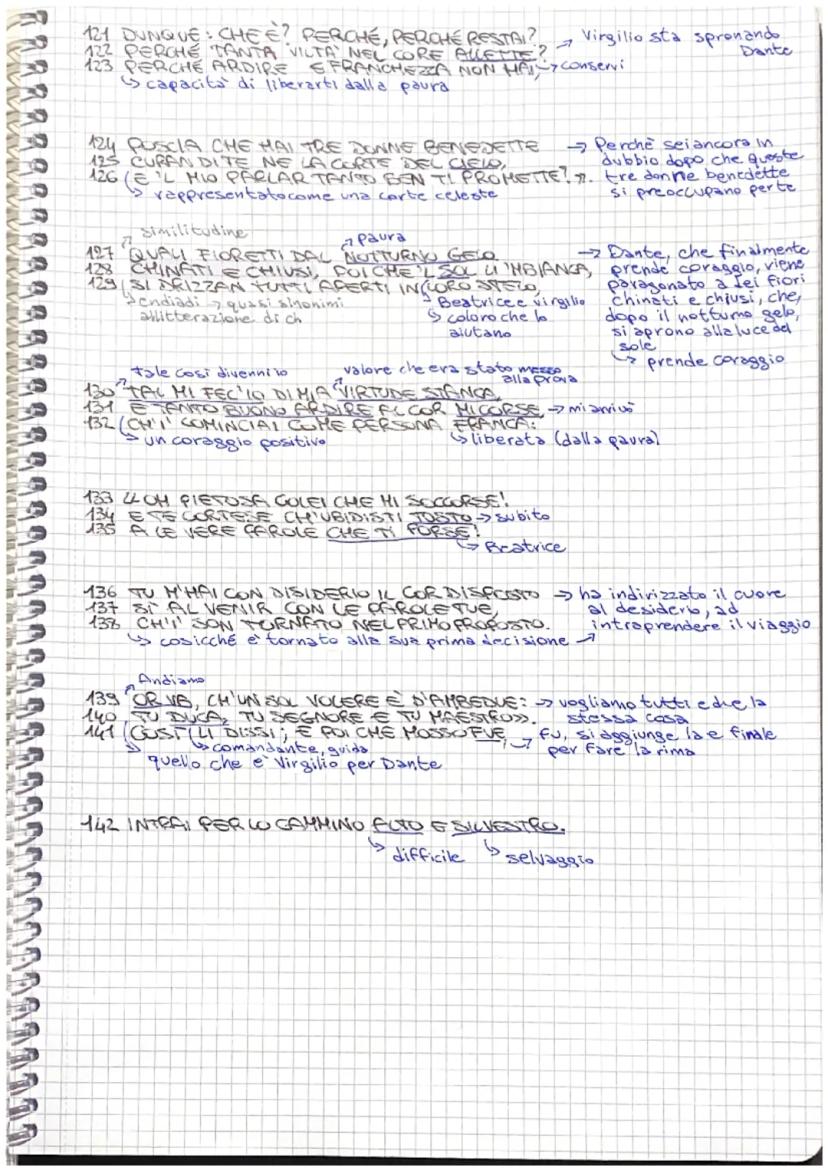 121 DUNQUE: CHE È? PERCHÉ, PERCHÉ RESTAI?
→ Virgilio sta spronando Dante
122 PERCHÉ TANTA VILTÀ NEL CORE ALLETTE?
→ conservi
123 PERCHÉ ARDIRE E FRANCHEZZA NON HAI,
↳ capacità di liberarti dalla paura
124 POSCIA CHE HAI TRE DONNE BENEDETTE
125 CURAN DI TE NE LA CORTE DEL CIELO,
126 E 'L MIO PARLAR TANTO BEN TI PROMETTE?».
↳ rappresentato come una corte celeste
→ Perchè sei ancora in
dubbio dopo che queste
tre donne benedette
si preoccupano per te
similitudine
paura
127 QUALI FIORETTI DAL NOTTURNO GELO
128 CHINATI E CHIUSI, POI CHE 'L SOL LI 'MBIANCA,
129 SI DRIZZAN TUTTI APERTI IN LORO STELO,
↳ endiadi → quasi sinonimi
allitterazione di ch
↳ Beatrice e virgilio
↳ coloro che lo
aiutano
→ Dante, che finalmente
prende coraggio, viene
paragonato a lei fiori
chinati e chiusi, che,
dopo il notturno gelo,
si aprono alla luce del
sole
↳ prende coraggio
tale così divenni io
valore che era stato messo
alla prova
130 TAL MI FEC'IO DI MIA VIRTUDE STANCA,
131 E TANTO BUONO ARDIRE AL COR MI CORSE, → mi arrivò
132 CH'I' COMINCIAI COME PERSONA FRANCA:
↳ un coraggio positivo
↳ liberata (dalla paura)
133 «OH PIETOSA COLEI CHE MI SOCCORSE!
134 E TE CORTESE CH'UBIDISTI TOSTO → subito
135 A LE VERE PAROLE CHE TI PORSE!
↳ Beatrice
136 TU M'HAI CON DISIDERIO IL COR DISPOSTO → ha indirizzato il cuore
137 SÌ AL VENIR CON LE PAROLE TUE, al desiderio, ad
138 CH'I' SON TORNATO NEL PRIMO PROPOSTO. intraprendere il viaggio
↳ cosicché è tornato alla sua prima decisione
Andiamo
139 OR VA, CH'UN SOL VOLERE È D'AMBEDUE: → vogliamo tutti e due la
140 TU DUCA, TU SEGNORE E TU MAESTRO». stessa cosa
141 COSÌ LI DISSI; E POI CHE MOSSO FUE, → fu, si aggiunge la e finale
per fare la rima
↳ comandante, guida
quello che è Virgilio per Dante
142 INTRAI PER LO CAMMINO ALTO E SILVESTRO.
↳ difficile ↳ selvaggio